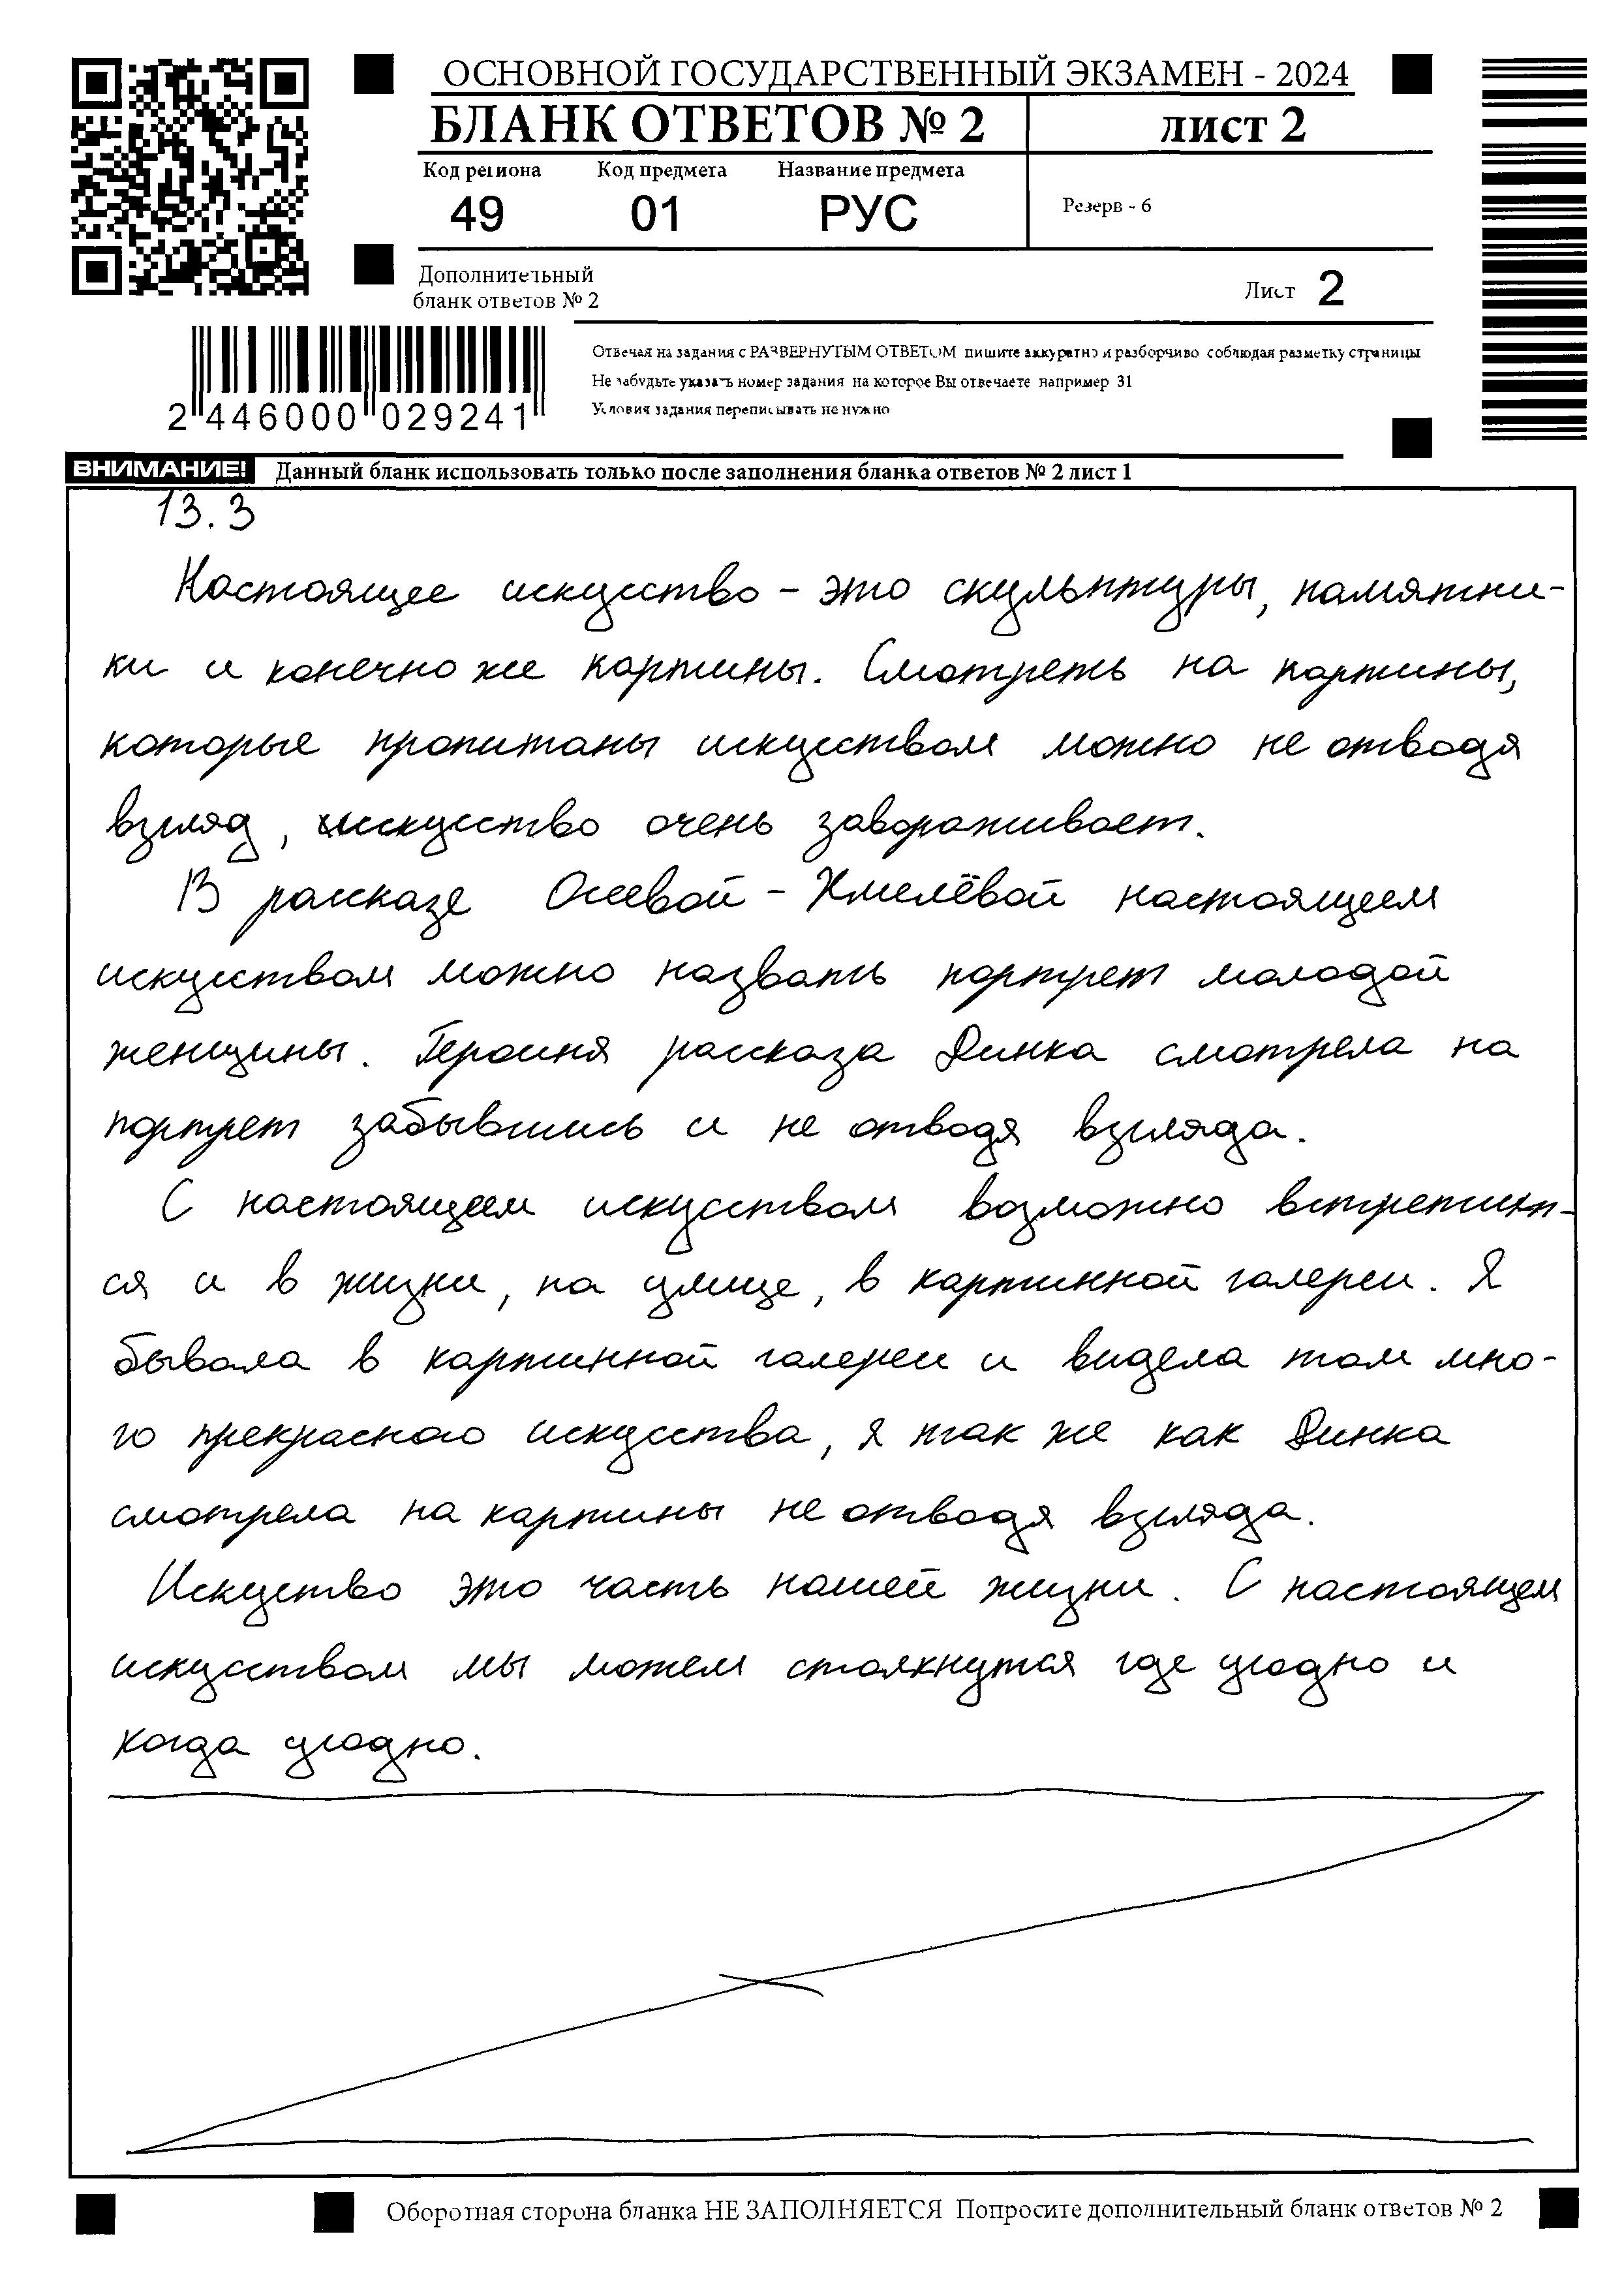 ОСНОВНОЙ ГОСУДАРСТВЕННЫЙ ЭКЗАМЕН - 2024
БЛАНК ОТВЕТОВ № 2 лист 2
Код региона Код предмета Название предмета
49 01 РУС Резерв - 6
Дополнительный
бланк ответов № 2 Лист 2
Отвечая на задания с РАЗВЕРНУТЫМ ОТВЕТОМ пишите аккуратно и разборчиво соблюдая разметку страницы
Не забудьте указать номер задания на которое Вы отвечаете например 31
Условия задания переписывать не нужно
2 446000 029241
ВНИМАНИЕ! Данный бланк использовать только после заполнения бланка ответов № 2 лист 1
13.3
Настоящее искусство - это скульптуры, памятни-
ки и конечно же картины. Смотреть на картины,
которые пропитаны искуством можно не отводя
взгляд, искусство очень завораживает.
В рассказе Осеевой - Хмелёвой настоящем
искуством можно назвать портрет молодой
женщины. Героиня рассказа Динка смотрела на
портрет забывшись и не отводя взгляда.
С настоящем искусством возможно встретит-
ся и в жизни, на улице, в картинной галереи. Я
бывала в картинной галереи и видела там мно-
го прекрасного искусства, я так же как Динка
смотрела на картины не отводя взгляда.
Искуство это часть нашей жизни. С настоящем
искусством мы можем столкнутся где угодно и
когда угодно.
Оборотная сторона бланка НЕ ЗАПОЛНЯЕТСЯ Попросите дополнительный бланк ответов № 2